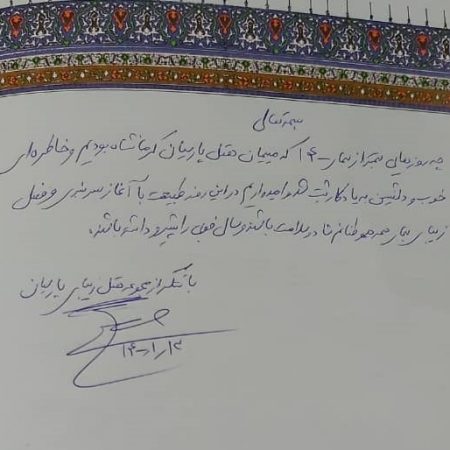 بسمه تعالی
چه روزهای بهتر از بهار ۱۴۰۰ که میهمان هتل پارسیان کرمانشاه بودیم و خاطره‌ای
خوب و دلنشین به یادگار ثبت شد و امیدواریم در این روز طبیعت با آغاز سرسبزی و فصل
زیبای بهار همه هموطنانم شاد و سلامت باشند و سال خوبی را پیش رو داشته باشند.
با تشکر از مجموعه هتل زیبای پارسیان
۱۴۰۰/۱/۱۳